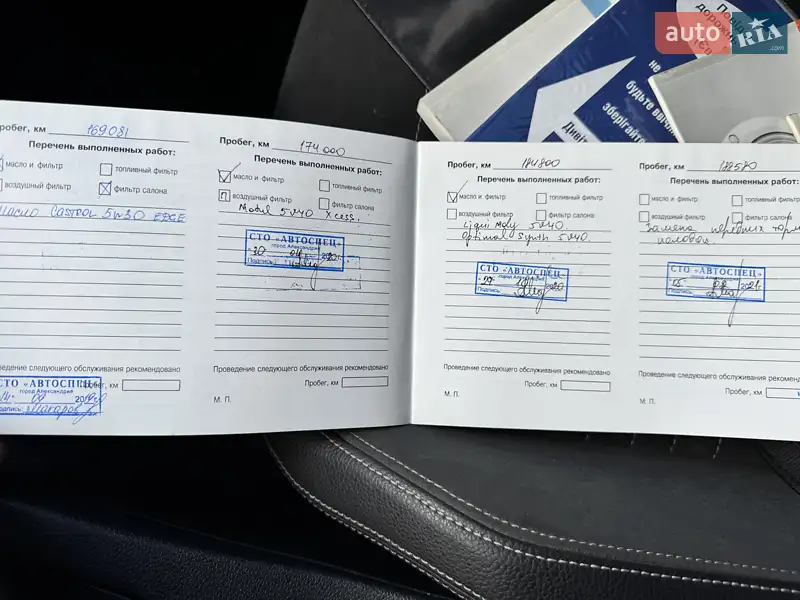 auto RIA .com
не
будьте
зберігайте
Пробег, км 169081
Перечень выполненных работ:
масло и фильтр
топливный фильтр
воздушный фильтр
фильтр салона
масло Castrol 5w30 EDGE
СТО «АВТОСПЕЦ»
город Александрия
Подпись
Проведение следующего обслуживания рекомендовано
Пробег, км
Пробег, км 174000
Перечень выполненных работ:
масло и фильтр
топливный фильтр
воздушный фильтр
фильтр салона
Motul 5w40 Xcess.
СТО «АВТОСПЕЦ»
город Александрия
30 04 2020
Подпись
Проведение следующего обслуживания рекомендовано
Пробег, км
М. П.
Пробег, км 184800
Перечень выполненных работ:
масло и фильтр
топливный фильтр
воздушный фильтр
фильтр салона
Liqui Moly 5w40.
Optimal Synth 5w40.
СТО «АВТОСПЕЦ»
город Александрия
2020
Подпись
Проведение следующего обслуживания рекомендовано
Пробег, км
М. П.
Пробег, км 188580
Перечень выполненных работ:
масло и фильтр
топливный фильтр
воздушный фильтр
фильтр салона
Замена передних торм
колодок.
СТО «АВТОСПЕЦ»
город Александрия
2021
Подпись
Проведение следующего обслуживания рекомендовано
Пробег, км
М. П.